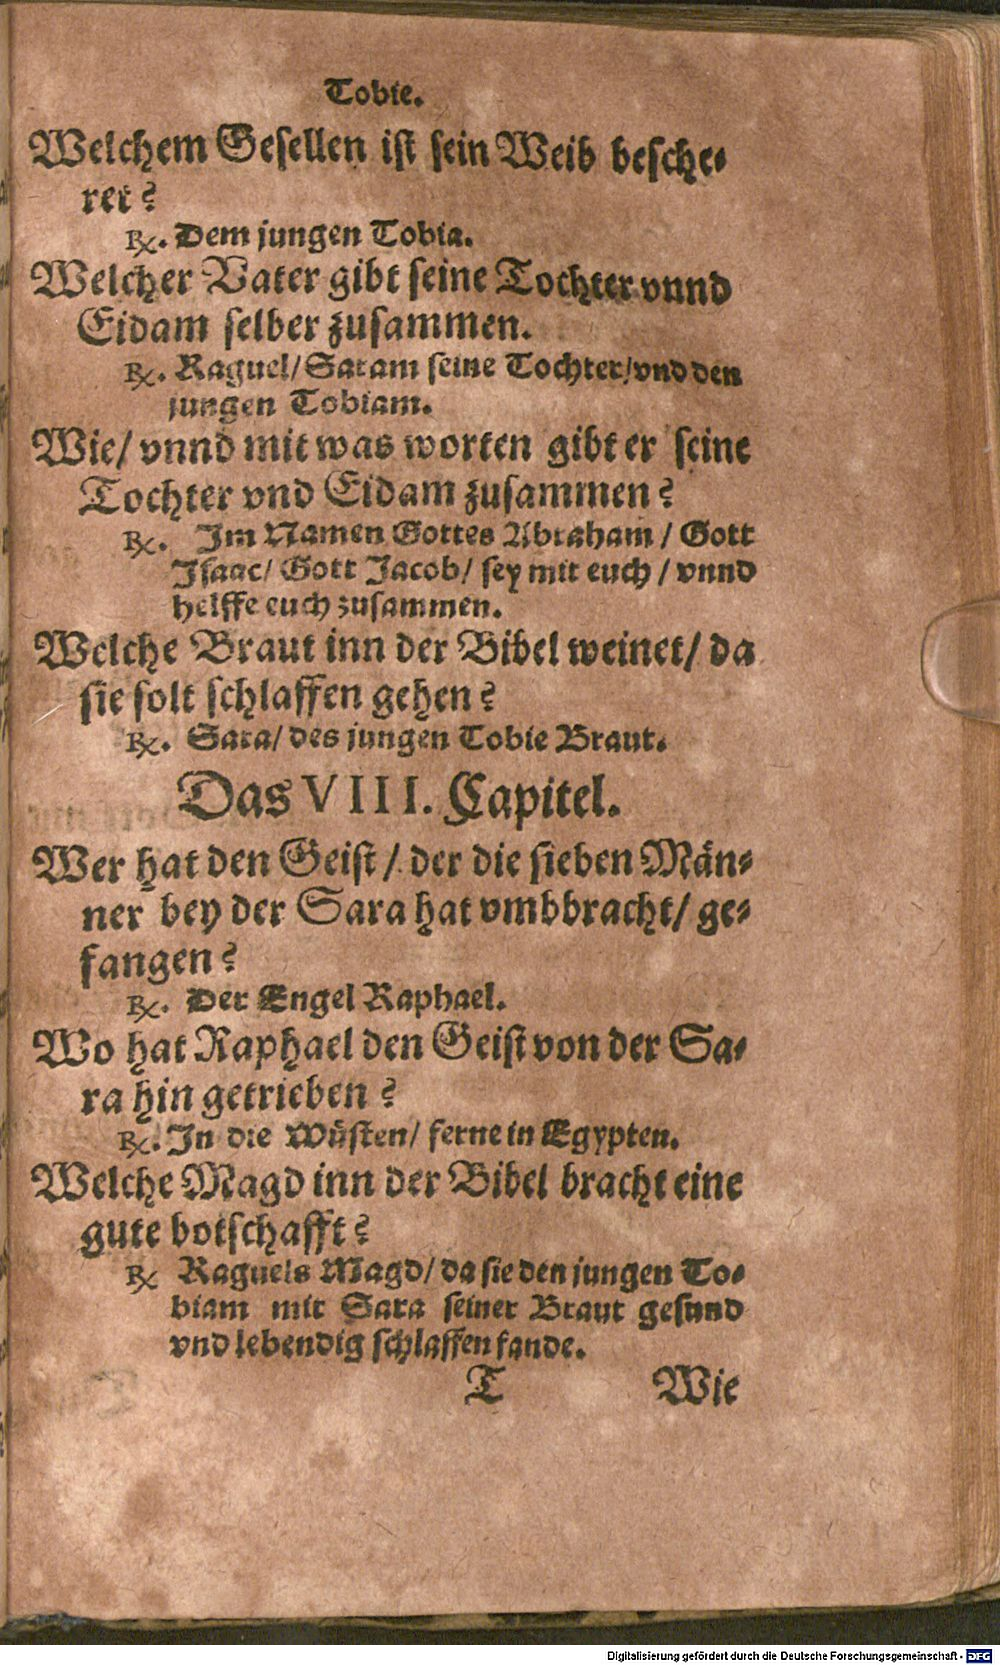 Tobie.
Welchem Gesellen ist sein Weib besche-
ret?
℞. Dem jungen Tobia.
Welcher Vater gibt seine Tochter vnnd
Eidam selber zusammen.
℞. Raguel/ Saram seine Tochter/ vnd den
jungen Tobiam.
Wie/ vnnd mit was worten gibt er seine
Tochter vnd Eidam zusammen?
℞. Im Namen Gottes Abraham / Gott
Isaac/ Gott Jacob/ sey mit euch / vnnd
helffe euch zusammen.
Welche Braut inn der Bibel weinet/ da
sie solt schlaffen gehen?
℞. Sara/ des jungen Tobie Braut.
Das VIII. Capitel.
Wer hat den Geist / der die sieben Män-
ner bey der Sara hat vmbbracht/ ge-
fangen?
℞. Der Engel Raphael.
Wo hat Raphael den Geist von der Sa-
ra hin getrieben?
℞. In die Wüsten/ ferne in Egypten.
Welche Magd inn der Bibel bracht eine
gute botschafft?
℞ Raguels Magd/ da sie den jungen To-
biam mit Sara seiner Braut gesund
vnd lebendig schlaffen fande.
T Wie
Digitalisierung gefördert durch die Deutsche Forschungsgemeinschaft - DFG